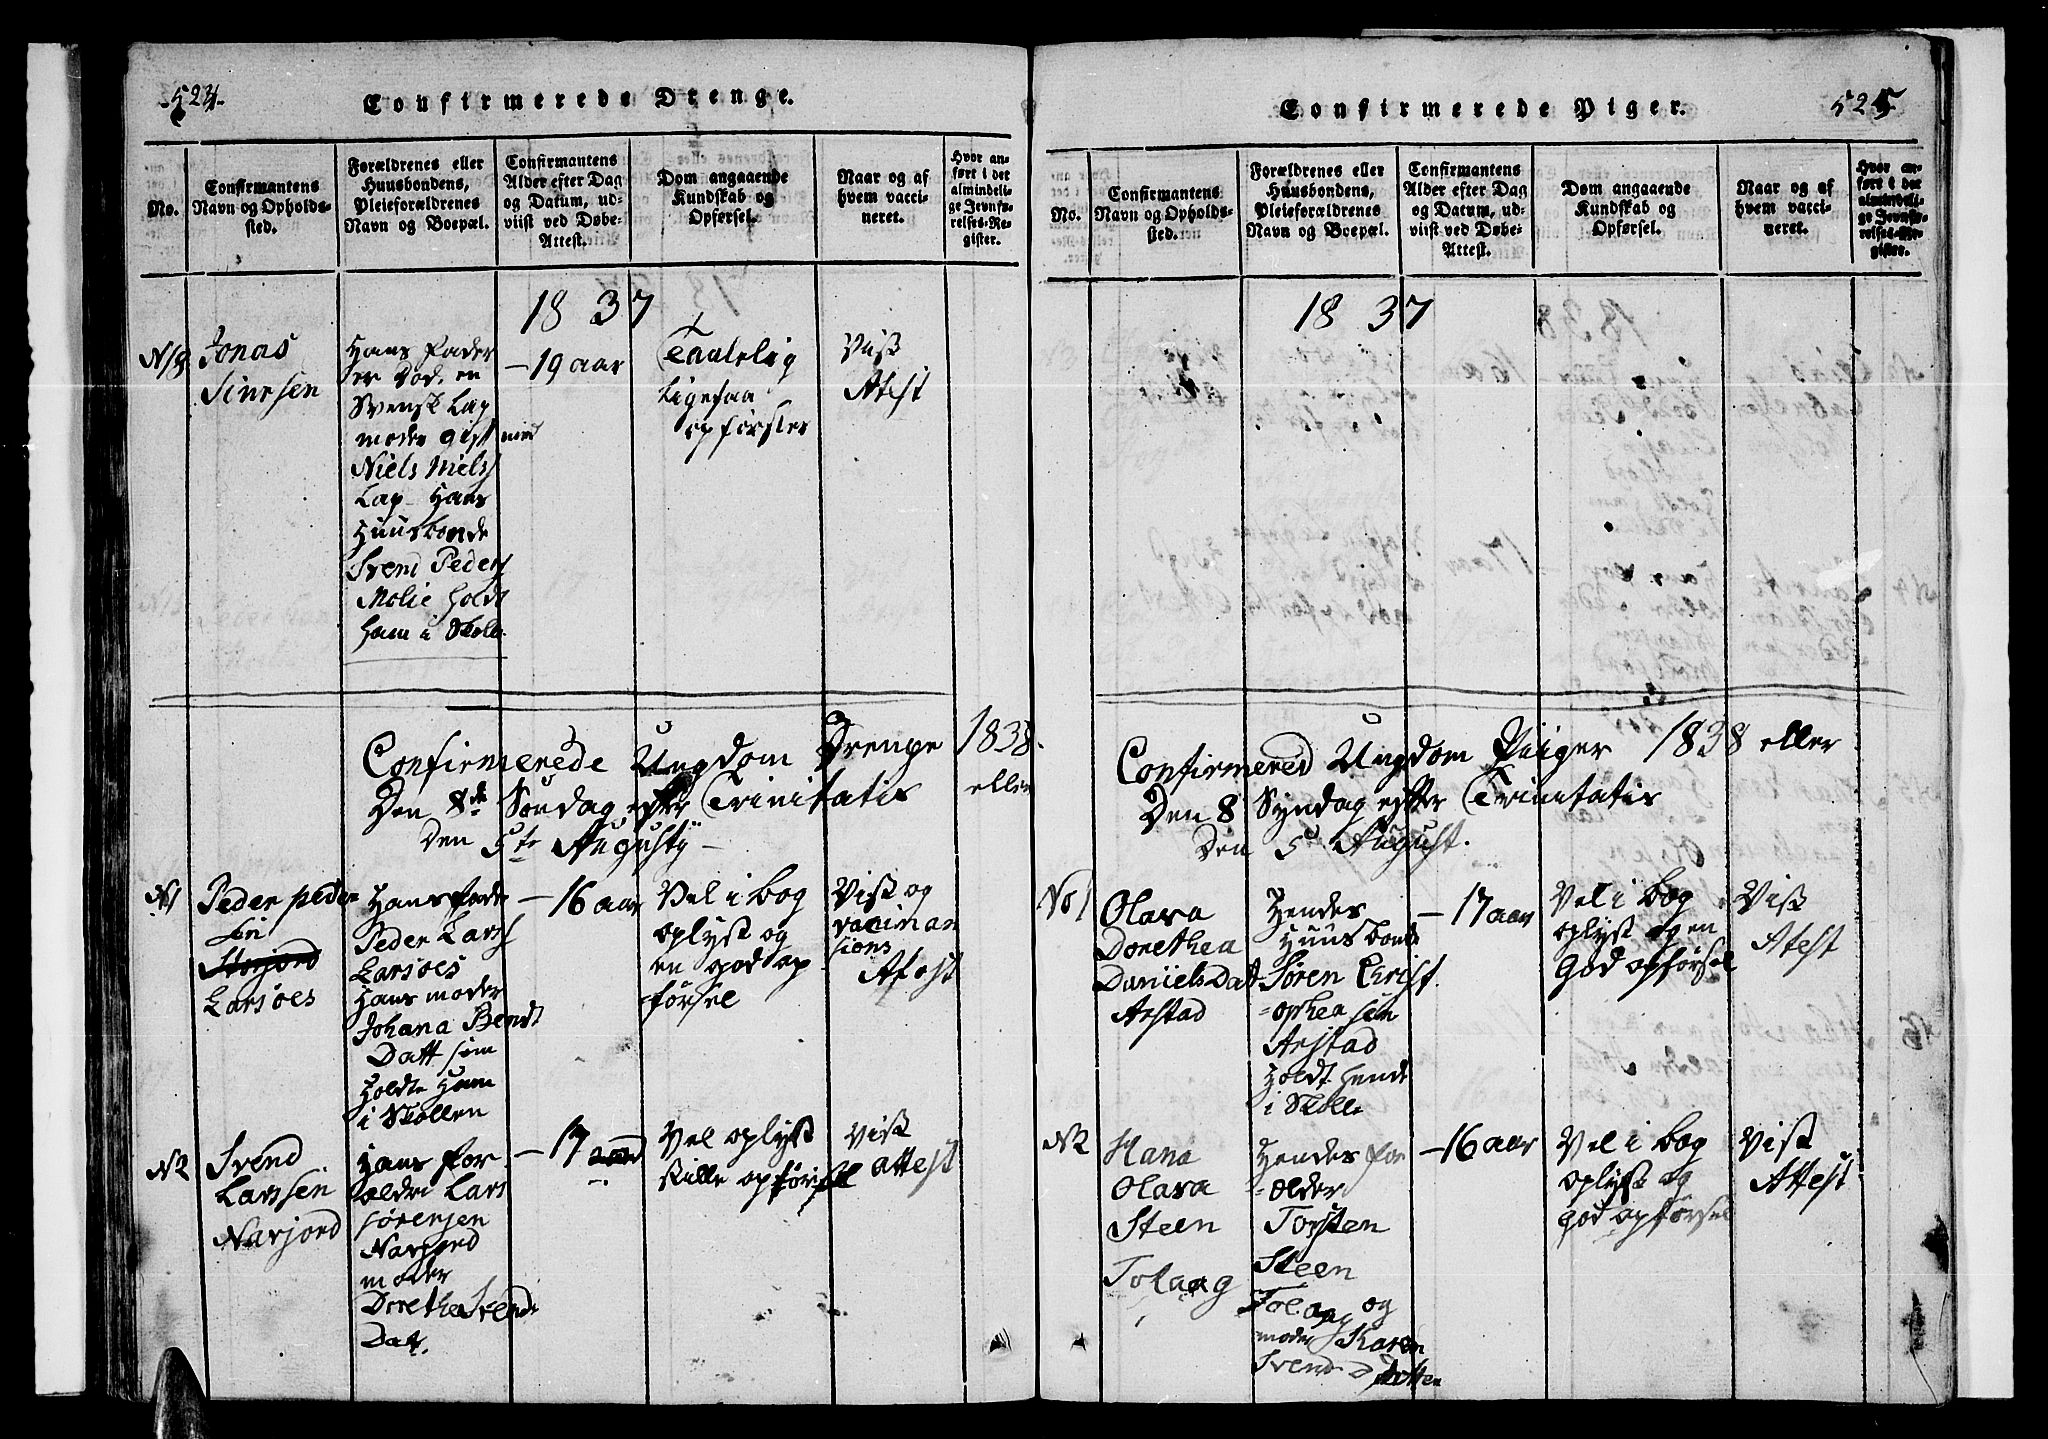 524.
Confirmerede Drenge.
No.
Confirmantens
Navn og Opholds-
sted.
Forældrenes eller
Huusbondens,
Pleieforældrenes
Navn og Boepæl.
Confirmantens
Alder efter Dag
og Datum, ud-
viist ved Døbe-
Attest.
Dom angaaende
Kundskab og
Opførsel.
Naar og af
hvem vacci-
neret.
Hvor an-
ført i det
almindeli-
ge Jevnfø-
relses-Re-
gister.
1837
Jonas
Hans Fader
er Død, en
Svensk Lap
moder gift med
Niels Niels
Lap Hans
Huusbonde
Svend Peders
holdt
ham i Skole
– 19 aar
Taalelig
ligesaa
opførsler
Vist
Atest
Confirmerede Ungdom Drenge 1838.
Den 8de Søndag efter Trinitatis eller
Den 5te Augusty –
N1
Peder peder
sen
Storjord
Larsoes
Hans fader
Peder Lars
Larsoes
Hans moder
Johana Bendt
Datt som
Holdte Ham
i Skollen
– 16 aar
Vel i bog
oplyst og
en god op
førsel
Vist og
Atest
N2
Svend
Larssen
Navjord
Hans for
ældre Lars
Sørensen
Navjord
moder
Dorethea Svends
Datt.
– 17
Vel oplyst
stille opførsel
Vist
attest
525
Confirmerede Piger.
No.
Confirmantens
Navn og Opholds-
sted.
Forældrenes eller
Huusbondens,
Pleieforældrenes
Navn og Boepæl.
Confirmantens
Alder efter Dag
og Datum, ud-
viist ved Døbe-
Attest.
Dom angaaende
Kundskab og
Opførsel.
Naar og af
hvem vacci-
neret.
Hvor an-
ført i det
almindeli-
ge Jevnfø-
relses-Re-
gister.
1837
Confirmered Ungdom Piiger 1838 eller
Den 8 Syndag efter Trinitatis
Den 5te August.
No 1
Olava
Dorethea
Daniels Datt
Arstad
Hendes
Huusbonde
Søren Christ
=ophersen
Arstad
Holdt hende
i Skolle
– 17 aar
Vel i bog
oplyst og en
God opførsel
Vist
Atest
N2
Hana
Olava
Steen
Tolaag
Hendes for
=ælder
Torsten
Steen
Tolaag og
moder Karen
Svends Datten
– 16 aar
Vel i bog
oplyst og
god opførsel
Vist
Attest